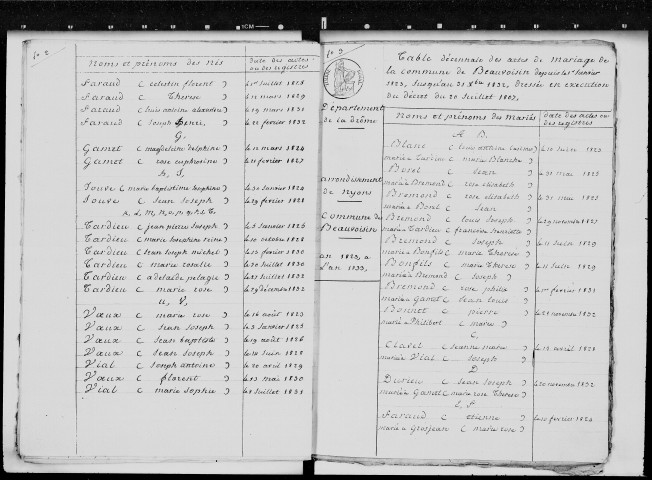 fo 2
Noms et prénoms des nés
date des actes
ou des registres
Faraud ( celestin florent )
le 1er Juillet 1828
Faraud ( Therese )
le 15 mars 1829
Faraud ( louis antoine alexandre )
le 19 mars 1831
Faraud ( Joseph henri )
le 21 février 1832
G,
Gamet ( magdeleine delphine )
le 11 mars 1824
Gamet ( rose euphrosine )
le 11 février 1827
h, J,
Jouve ( marie baptistine sophine )
le 30 Janvier 1824
Jouve ( Jean Joseph )
le 29 février 1828
K, L, M, N, O, P, Q, R, S, T,
Tardieu ( jean pierre Joseph )
le 3 Janvier 1826
Tardieu ( marie Josephine reine )
le 10 octobre 1828
Tardieu ( Jean Joseph michel )
le 23 février 1830
Tardieu ( marie rosalie )
le 30 Juillet 1830
Tardieu ( adelaide pelagie )
le 27 Juillet 1832
Tardieu ( marie rose )
le 29 décembre 1832
U, V,
Vaux ( marie rose )
le 16 août 1823
Vaux ( Jean Joseph )
le 3 Janvier 1825
Vaux ( Jean baptiste )
le 19 août 1826
Vaux ( Jean Joseph )
le 18 Juin 1828
Vial ( Joseph antoine )
le 20 avril 1829
Vaux ( florent )
le 13 mai 1830
Vial ( marie sophie )
le 8 Juillet 1831
fo 3
Département
de la drôme
arrondissement
de Nyons
Commune de
Beauvoisin
an 1823, a
l'an 1833,
Table décennale des actes de mariage de
la commune de Beauvoisin depuis le 1er Janvier
1823, Jusqu'au 31 Xbre 1832, dressée en execution
du décret du 20 Juillet 1807,
Noms et prénoms des mariés
date des actes ou
des registres
A, B,
Blanc ( louis )
marié a Tardieu ( marie blanche )
le 10 Juin 1823
Borel ( Jean )
marié a Bremond ( rose elisabeth )
le 31 mai 1825
Bremond ( rose elisabeth )
mariée a Borel ( Jean )
le 31 mai 1825
Bremond ( louis Joseph )
marié a Tardieu ( francoise henriette )
Bremond ( Joseph )
marié a Bonfils ( marie Therese )
le 11 Juin 1829
Bonfils ( marie Therese )
mariée a Bremond ( Joseph )
le 11 Juin 1829
Bremond ( rose )
mariée a Gamet ( Jean louis )
le 1er février 1831
Bonnet ( pierre )
marié a Philibert ( marie )
C,
Clavel ( Jeanne marie )
mariée a Vial ( Joseph )
le 15 avril 1828
D,
Durieu ( Jean Joseph )
marié a Gamet ( marie rose Therese )
E, F,
Faraud ( etienne )
marié a Grosjean ( marie rose )